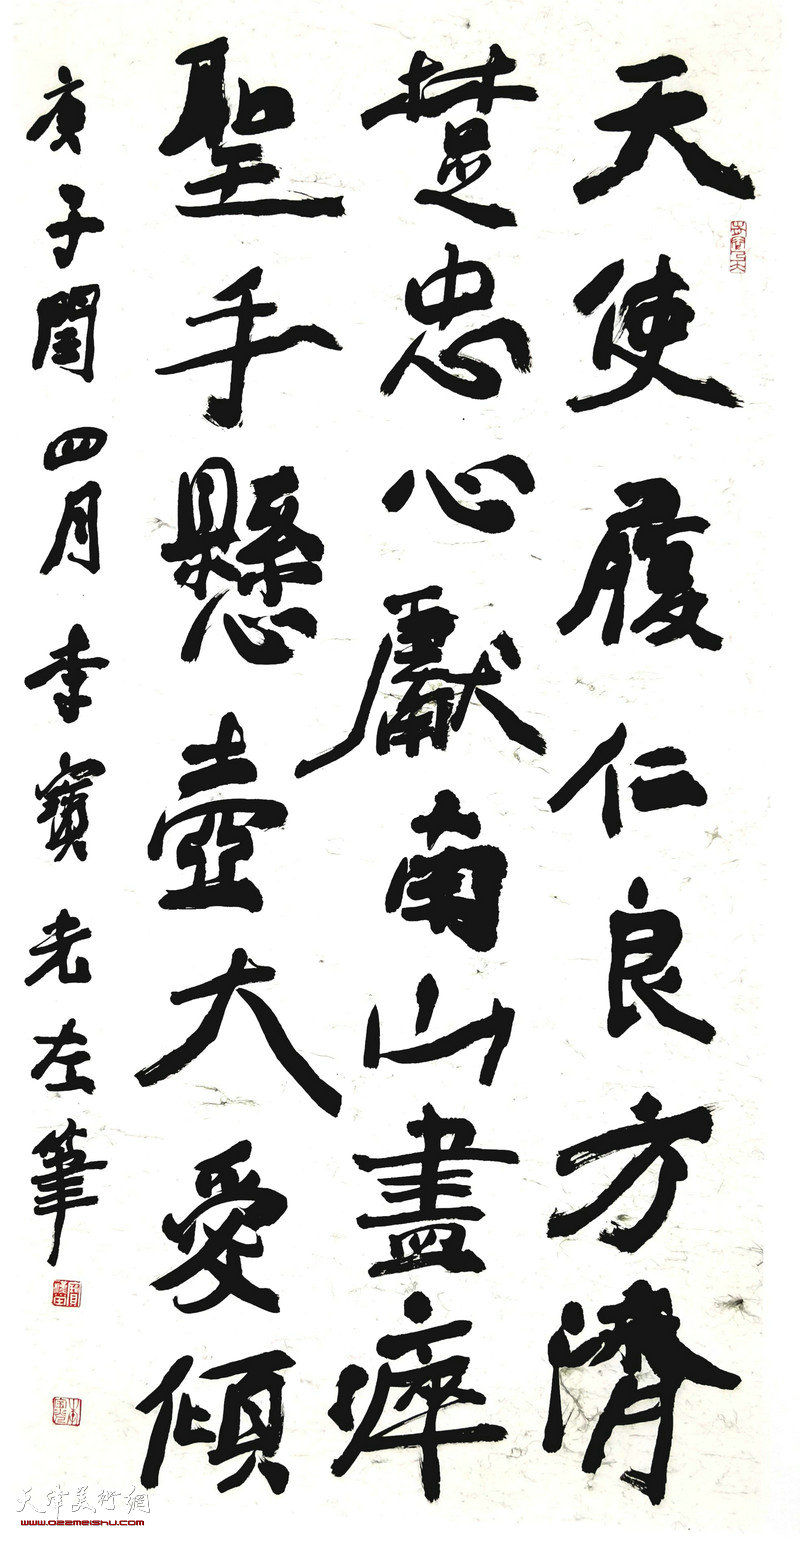 天使履仁良方濟
楚忠心獻南山盡瘁
聖手懸壺大愛傾
庚子閏四月李寶光左筆
天津美術網
www.022meishu.com